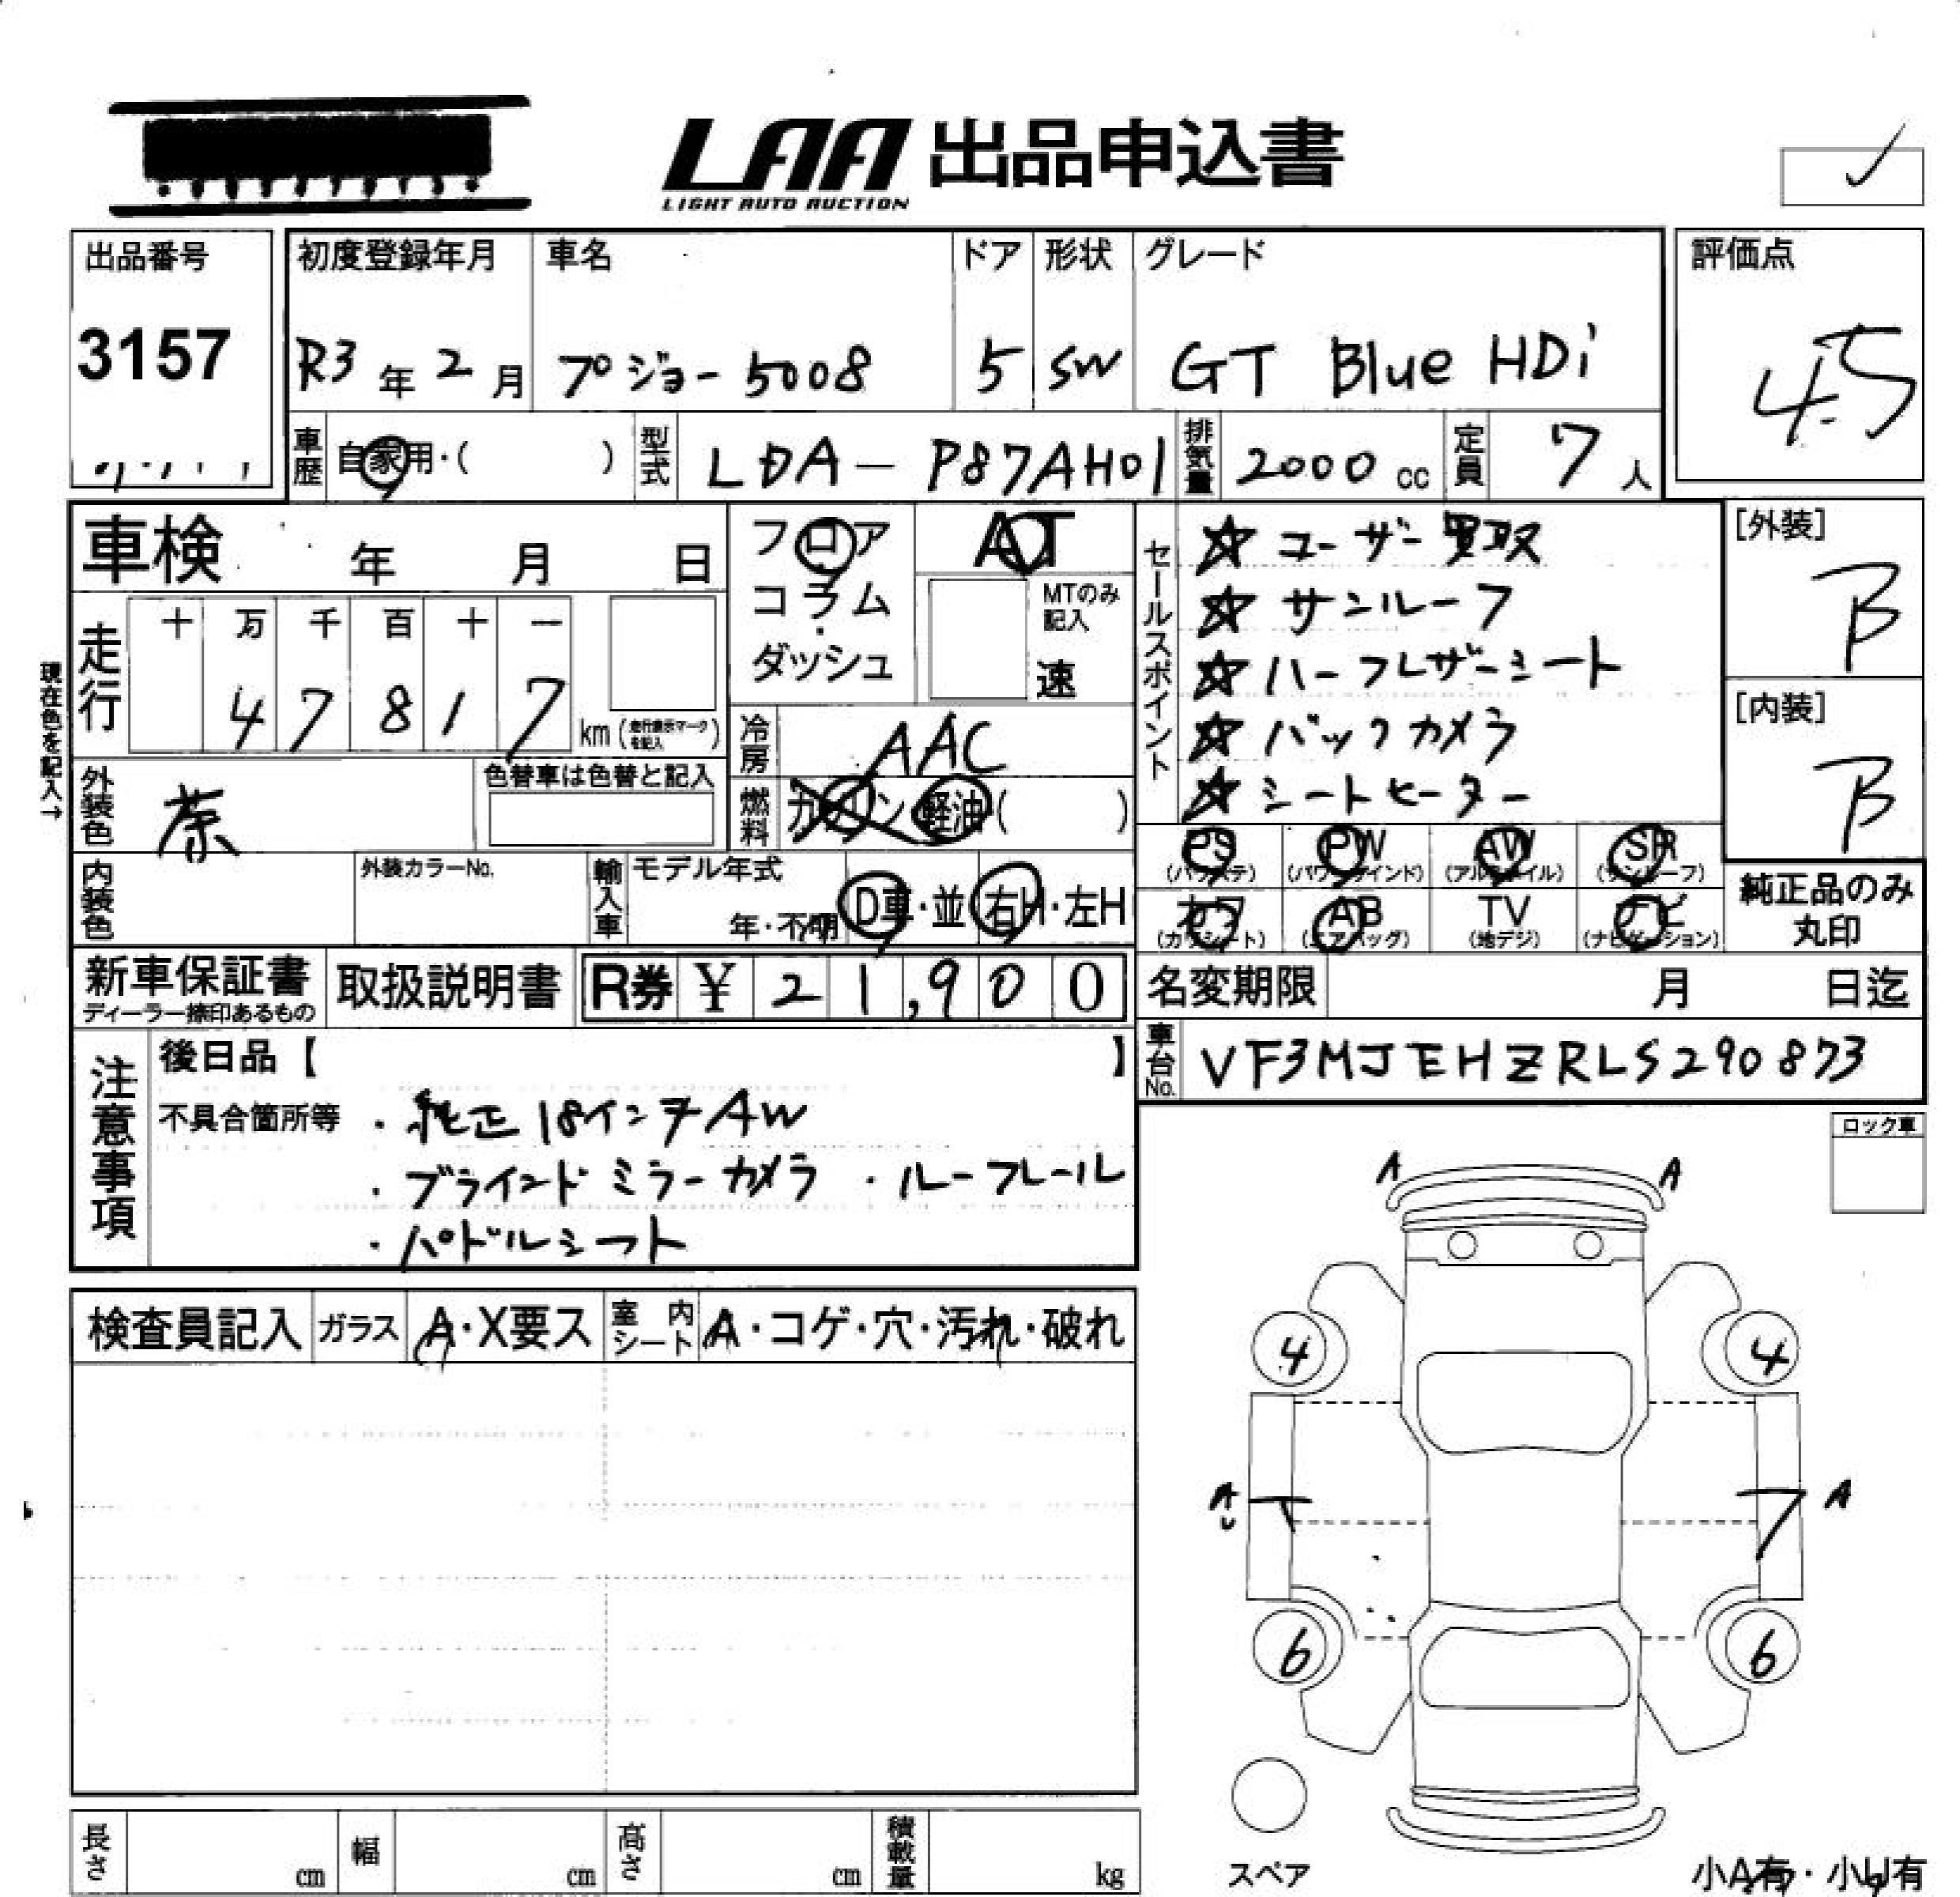 LAA 出品申込書
LIGHT AUTO AUCTION
出品番号
3157
初度登録年月
R3年2月
車名
プジョー5008
ドア
5
形状
SW
グレード
GT Blue HDi
評価点
4.5
車歴 自家用・( )
型式 LDA-P87AH01
排気量 2000 cc
定員 7人
車検 年 月 日
フロア
コラム
・
ダッシュ
AT
MTのみ記入
速
セールスポイント
☆ ユーザー買取
☆ サンルーフ
☆ ハーフレザーシート
☆ バックカメラ
☆ シートヒーター
[外装]
B
[内装]
B
現在色を記入→
走行
十 万 千 百 十 一
4 7 8 1 7 km (走行表示マークを記入)
冷房 AAC
燃料 ガソリン 軽油 ( )
外装色 茶
色替車は色替と記入
内装色
外装カラーNo.
輸入車 モデル年式
年・不明 D車・並 右H・左H
PS (パワステ) PW (パワーウインド) AW (アルミホイル) SR (サンルーフ)
カワ (カワシート) AB (エアバッグ) TV (地デジ) ナビ (ナビゲーション)
純正品のみ
丸印
新車保証書
ディーラー捺印あるもの
取扱説明書
R券 ¥ 21,900
名変期限 月 日迄
車台No. VF3MJEHZRLS290873
注意事項
後日品【 】
不具合箇所等
・純正18インチAW
・ブラインドミラーカメラ ・ルーフレール
・パドルシフト
ロック車
検査員記入 ガラス A・X要ス 室内シート A・コゲ・穴・汚れ・破れ
A A
4 4
A A
6 6
スペア
小A有・小U有
長さ cm 幅 cm 高さ cm 積載量 kg